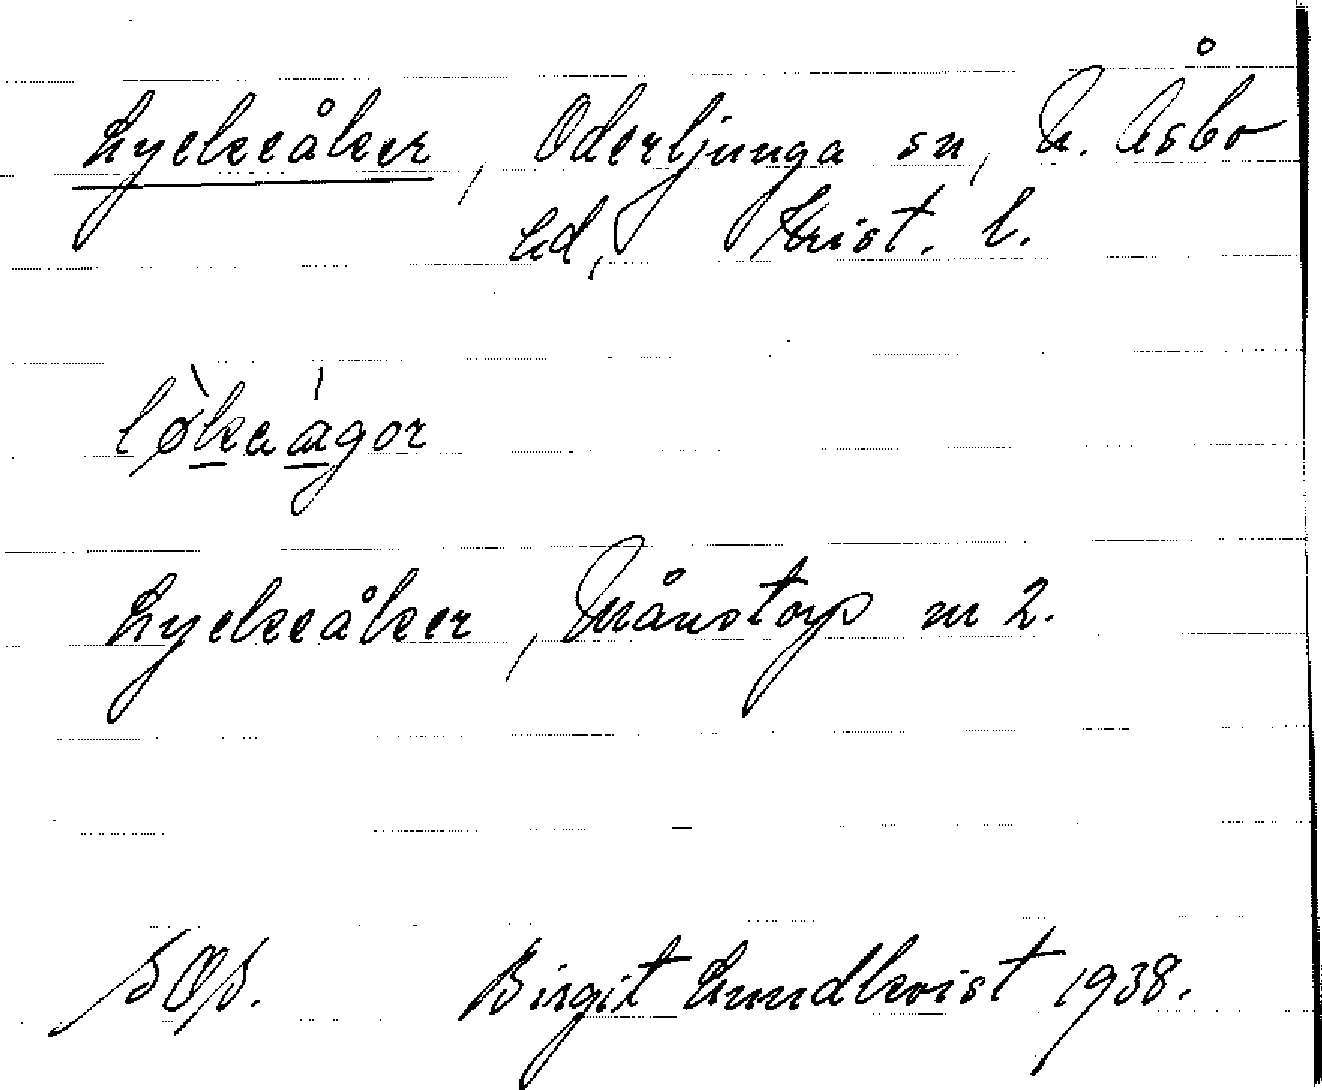 Lyckeåker, Oderljunga sn, N. Åsbo
hd, Krist. l.
løkaågor
Lyckeåker, Månstorp nr 2.
SOS. Birgit Lundkvist 1938.